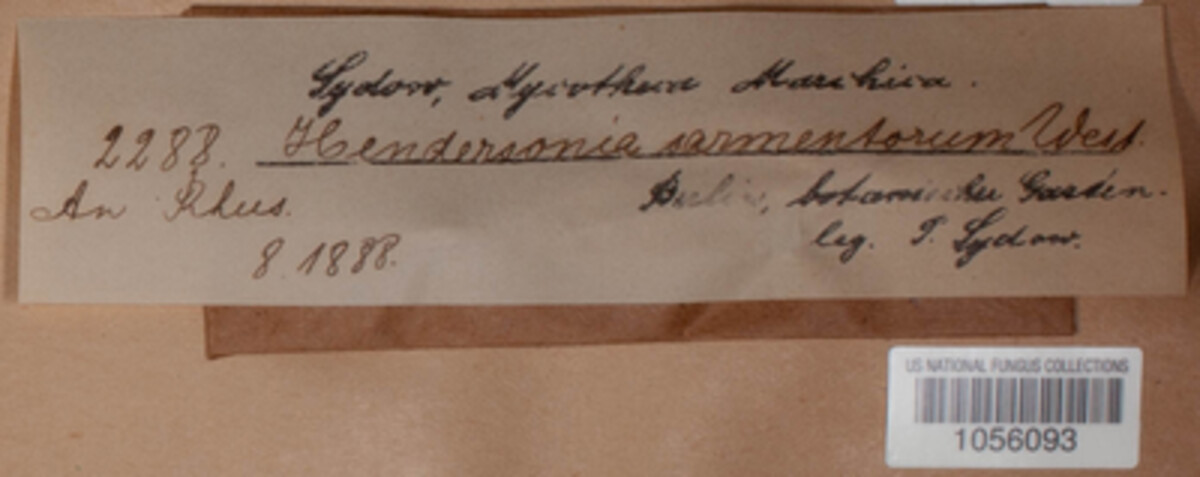 Sydow, Mycotheca Marchica.
2288. Hendersonia sarmentorum West.
An Rhus.
Berlin, botanischer Garten.
8. 1888.
leg. P. Sydow.
US NATIONAL FUNGUS COLLECTIONS
1056093